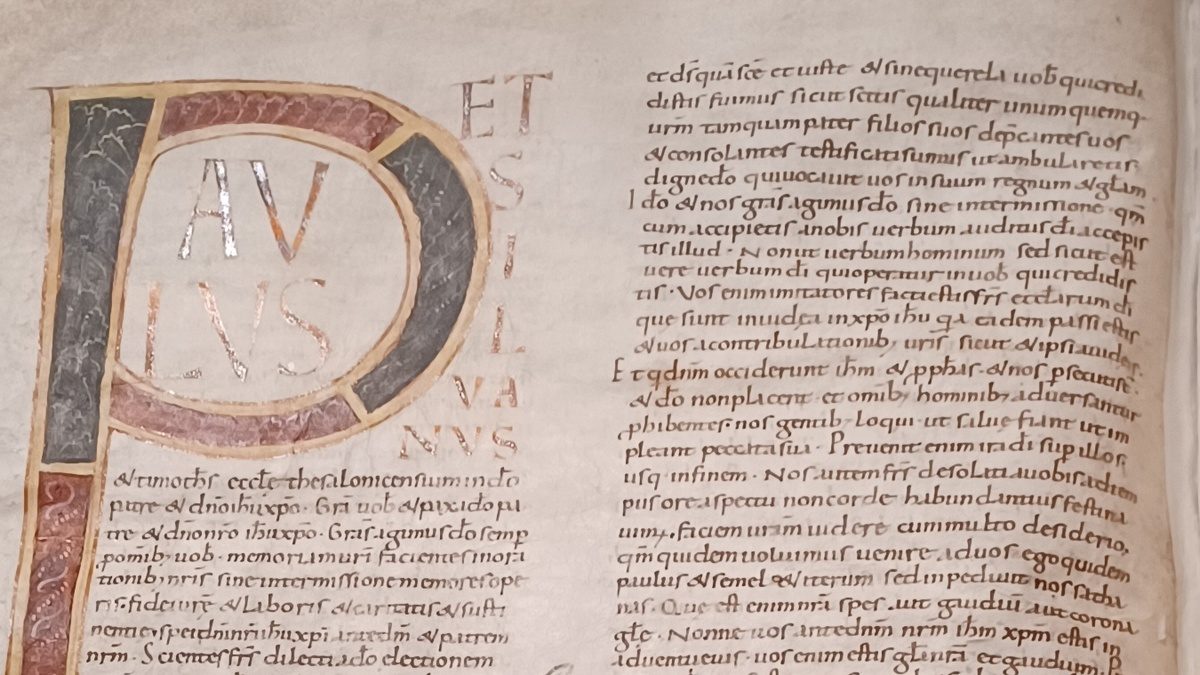 PAV
LVS
ET
S
I
L
VA
NVS
& timoth̄s eccłe thesalonicensium in dō
patre & dn̄o ihū xp̄o · Gr̄a uob̄ & pax ido pa
tre & dn̄o nr̄o ihū xp̄o · Gr̄as agimus dō semp
p omib; uob · memoriam urī facientes in ora
tionib; nr̄is sine intermissione memores ope
ris fidei ur̄e & laboris & caritatis & susti
nentie spei dn̄i nr̄i ihū xp̄i ante dm̄ & patrem
nr̄m · Scientes fr̄s dilecti a dō electionem
et ds̄ quā sc̄e et iuste & sine querela uob̄ qui credi
distis fuimus sicut scitis qualiter unumquemq·
ur̄m tamquam pater filios suos dep̄cantes uos
& consolantes testificati sumus ut ambularetis
digne dō qui uocauit uos in suum regnum & gl̄am
Ido & nos gr̄as agimus dō sine intermissione · qm̄
cum accipietis a nobis uerbum auditus dī accepis
tis illud · Non ut uerbum hominum sed sicut est
uere uerbum dī qui operatur in uob̄ qui credidis
tis · Vos enim imitatores facti estis fr̄s eccłarum dī
que sunt in iudea in xp̄o ihū qa eadem passi estis
& uos a contribulationib; uris̄ sicut & ipsi a iudeis·
Et q dn̄m occiderunt ihm̄ & pphas̄ & nos psecuti st̄·
& dō non placent et omib; hominib; aduersantur
phibentes nos gentib; loqui · ut salue fiant ut im
pleant peccata sua · Preuenit enim ira dī sup illos
usq· in finem · Nos autem fr̄s desolati a uobis ad tem
pus ore aspectu non corde habundantius festina
uim; faciem uram̄ uidere cum multo desiderio,
qm̄ quidem uoluimus uenire ad uos ego quidem
paulus & semel & iterum sed inpediuit nos satha
nas · Que est enim nr̄a spes · aut gaudiū aut corona
glē · Nonne uos ante dn̄m nr̄m ihm̄ xpm̄ estis in
aduentu eius · uos enim estis gl̄a nr̄a et gaudium · P